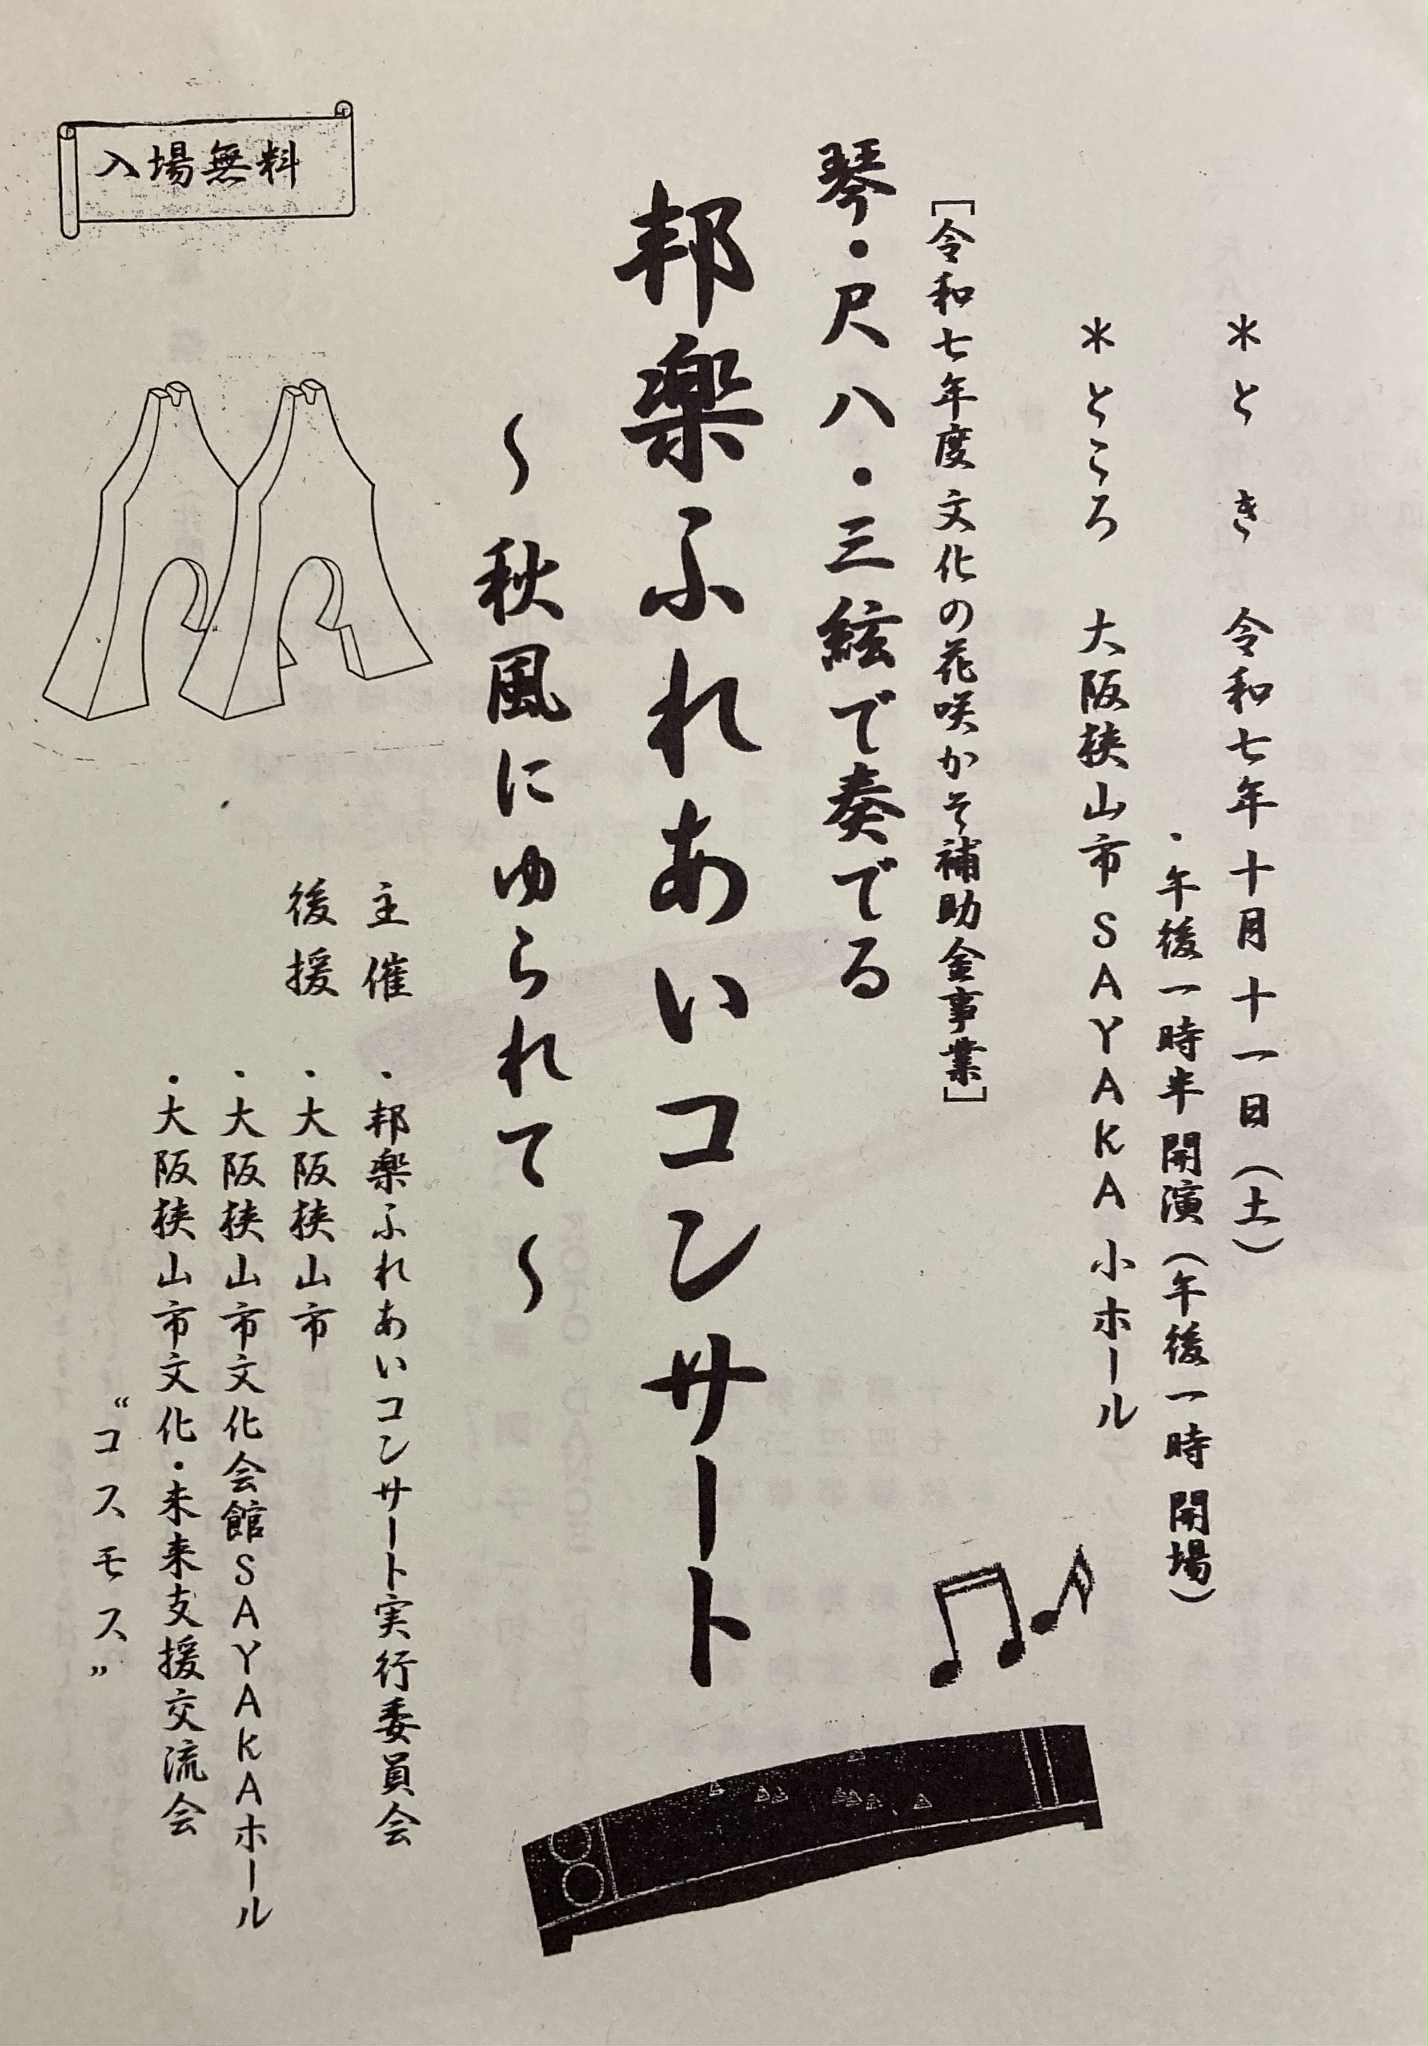 ＊とき 令和七年十月十一日（土）
・午後一時半開演（午後一時開場）
＊ところ 大阪狭山市SAYAKA小ホール
［令和七年度文化の花咲かそ補助金事業］
琴・尺八・三絃で奏でる
邦楽ふれあいコンサート
～秋風にゆられて～
主催 ・邦楽ふれあいコンサート実行委員会
後援 ・大阪狭山市
・大阪狭山市文化会館SAYAKAホール
・大阪狭山市文化・未来支援交流会
“コスモス”
入場無料